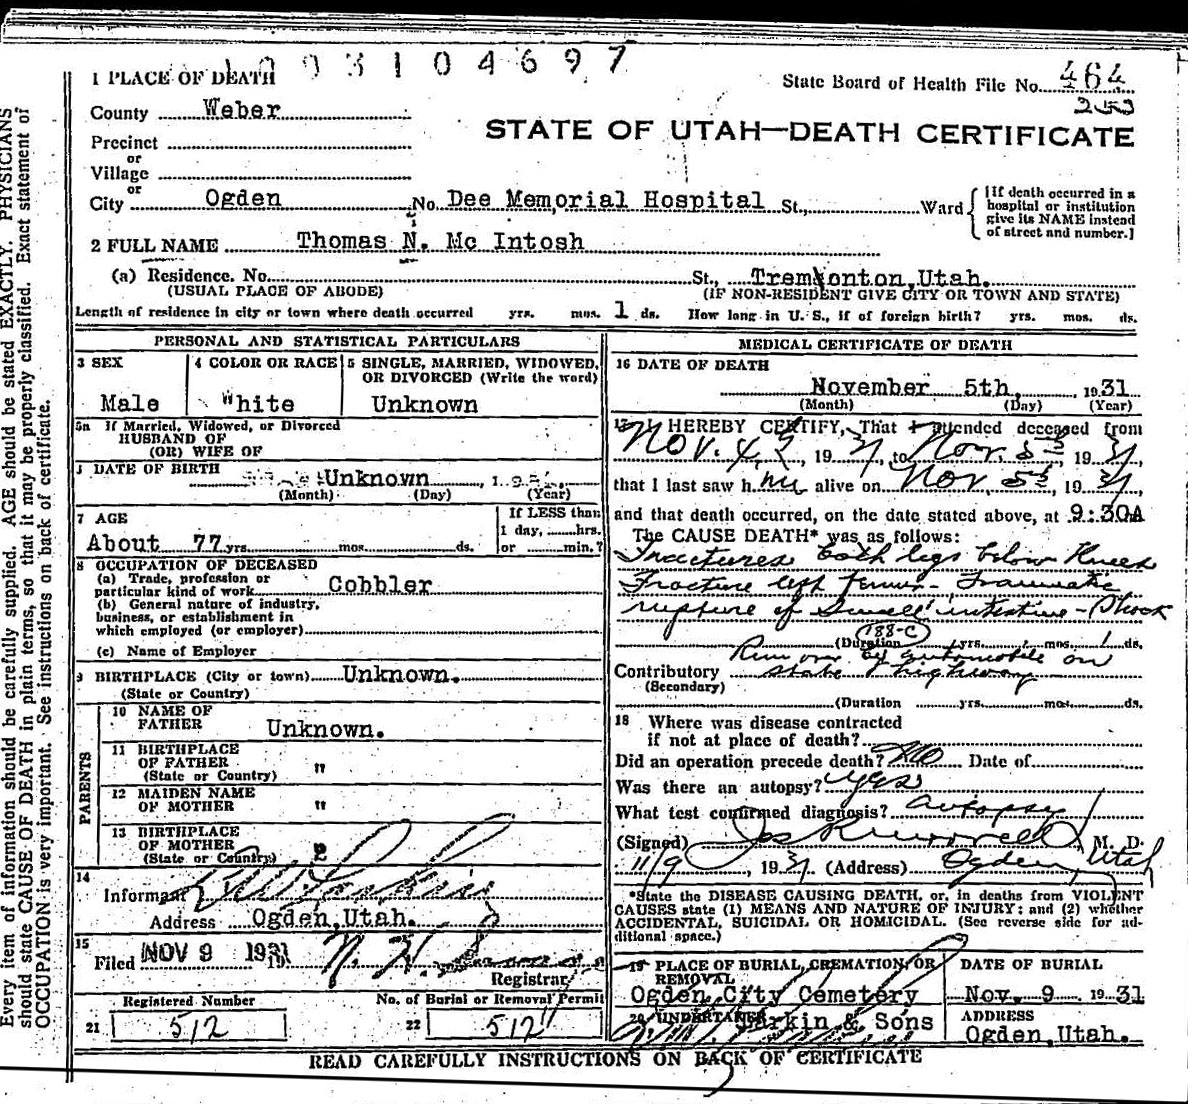 Every item of information should be carefully supplied. AGE should be stated EXACTLY. PHYSICIANS
should state CAUSE OF DEATH in plain terms, so that it may be properly classified. Exact statement of
OCCUPATION is very important. See instructions on back of certificate.
3104697
1 PLACE OF DEATH
State Board of Health File No. 464
253
County Weber
STATE OF UTAH—DEATH CERTIFICATE
Precinct
or
Village
or
City Ogden No. Dee Memorial Hospital St., Ward
[If death occurred in a
hospital or institution
give its NAME instead
of street and number.]
2 FULL NAME Thomas N. Mc Intosh
(a) Residence. No. St., Tremonton, Utah.
(USUAL PLACE OF ABODE) (IF NON-RESIDENT GIVE CITY OR TOWN AND STATE)
Length of residence in city or town where death occurred yrs. mos. 1 ds. How long in U. S., if of foreign birth? yrs. mos. ds.
PERSONAL AND STATISTICAL PARTICULARS
3 SEX
Male
4 COLOR OR RACE
White
5 SINGLE, MARRIED, WIDOWED,
OR DIVORCED (Write the word)
Unknown
5a If Married, Widowed, or Divorced
HUSBAND OF
(OR) WIFE OF
DATE OF BIRTH
Unknown
(Month) (Day) (Year)
7 AGE
About 77 yrs. mos. ds.
If LESS than
1 day, hrs.
or min.?
8 OCCUPATION OF DECEASED
(a) Trade, profession or
particular kind of work Cobbler
(b) General nature of industry,
business, or establishment in
which employed (or employer)
(c) Name of Employer
9 BIRTHPLACE (City or town) Unknown.
(State or Country)
PARENTS
10 NAME OF
FATHER Unknown.
11 BIRTHPLACE
OF FATHER "
(State or Country)
12 MAIDEN NAME
OF MOTHER "
13 BIRTHPLACE
OF MOTHER
(State or Country)
14
Informant
Address Ogden, Utah.
15
Filed NOV 9 1931 N. H.
Registrar
Registered Number
21 512
No. of Burial or Removal Permit
22 512
MEDICAL CERTIFICATE OF DEATH
16 DATE OF DEATH
November 5th, 1931
(Month) (Day) (Year)
17 I HEREBY CERTIFY, That I attended deceased from
Nov. 4, 1931, to Nov. 5th 1931,
that I last saw him alive on Nov. 5th, 1931,
and that death occurred, on the date stated above, at 9:30A m
The CAUSE DEATH* was as follows:
Fractures both legs below Knees
Fracture left femur - Traumatic
rupture of small intestine - Shock
188-C
(Duration yrs. mos. 1 ds.
Run over by automobile on
Contributory state highway
(Secondary)
(Duration yrs. mos. ds.
18 Where was disease contracted
if not at place of death?
Did an operation precede death? No Date of
Was there an autopsy? yes
What test confirmed diagnosis? autopsy
(Signed) M. D.
11/9, 1931. (Address) Ogden, Utah
*State the DISEASE CAUSING DEATH, or, in deaths from VIOLENT
CAUSES state (1) MEANS AND NATURE OF INJURY; and (2) whether
ACCIDENTAL, SUICIDAL OR HOMICIDAL. (See reverse side for ad-
ditional space.)
19 PLACE OF BURIAL, CREMATION, OR
REMOVAL
Ogden City Cemetery
DATE OF BURIAL
Nov. 9 1931
20 UNDERTAKER
Larkin & Sons
ADDRESS
Ogden, Utah.
READ CAREFULLY INSTRUCTIONS ON BACK OF CERTIFICATE